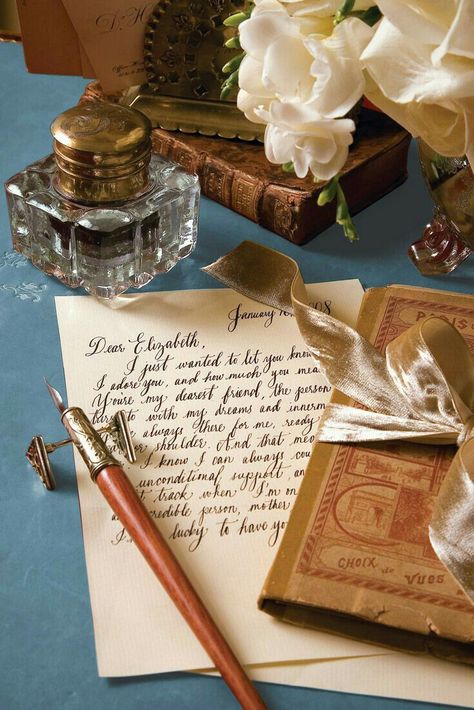 January 10,
08
Dear Elizabeth,
I just wanted to let you know
I adore you, and how much you mea
You're my dearest friend, the person
with my dreams and innerm
always there for me, ready
shoulder. And that me
I know I can always cou
unconditional support, an
track when I'm on
credible person, mother
lucky to have you
PARIS
CHOIX de VUES